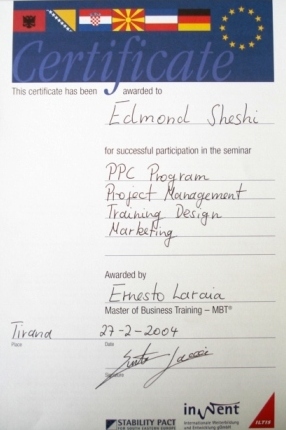 Certificate
This certificate has been awarded to
Edmond Sheshi
for successful participation in the seminar
PPC Program
Project Management
Training Design
Marketing
Awarded by
Ernesto Laraia
Master of Business Training – MBT®
Tirana 27-2-2004
Place Date
Signature
STABILITY PACT
FOR SOUTH EASTERN EUROPE
inWent
Internationale Weiterbildung
und Entwicklung gGmbH
ILTIS